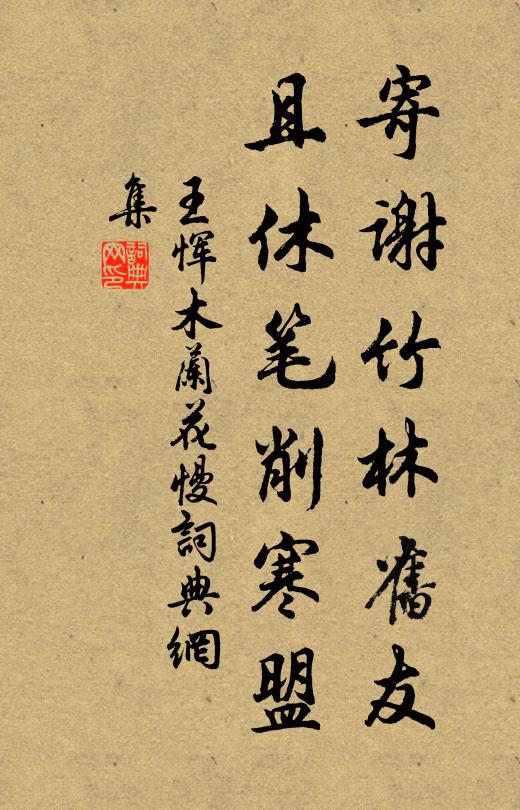 寄谢竹林舊友
且休笔削寒盟
王恽木蘭花慢詞典網
集
詞典
网印